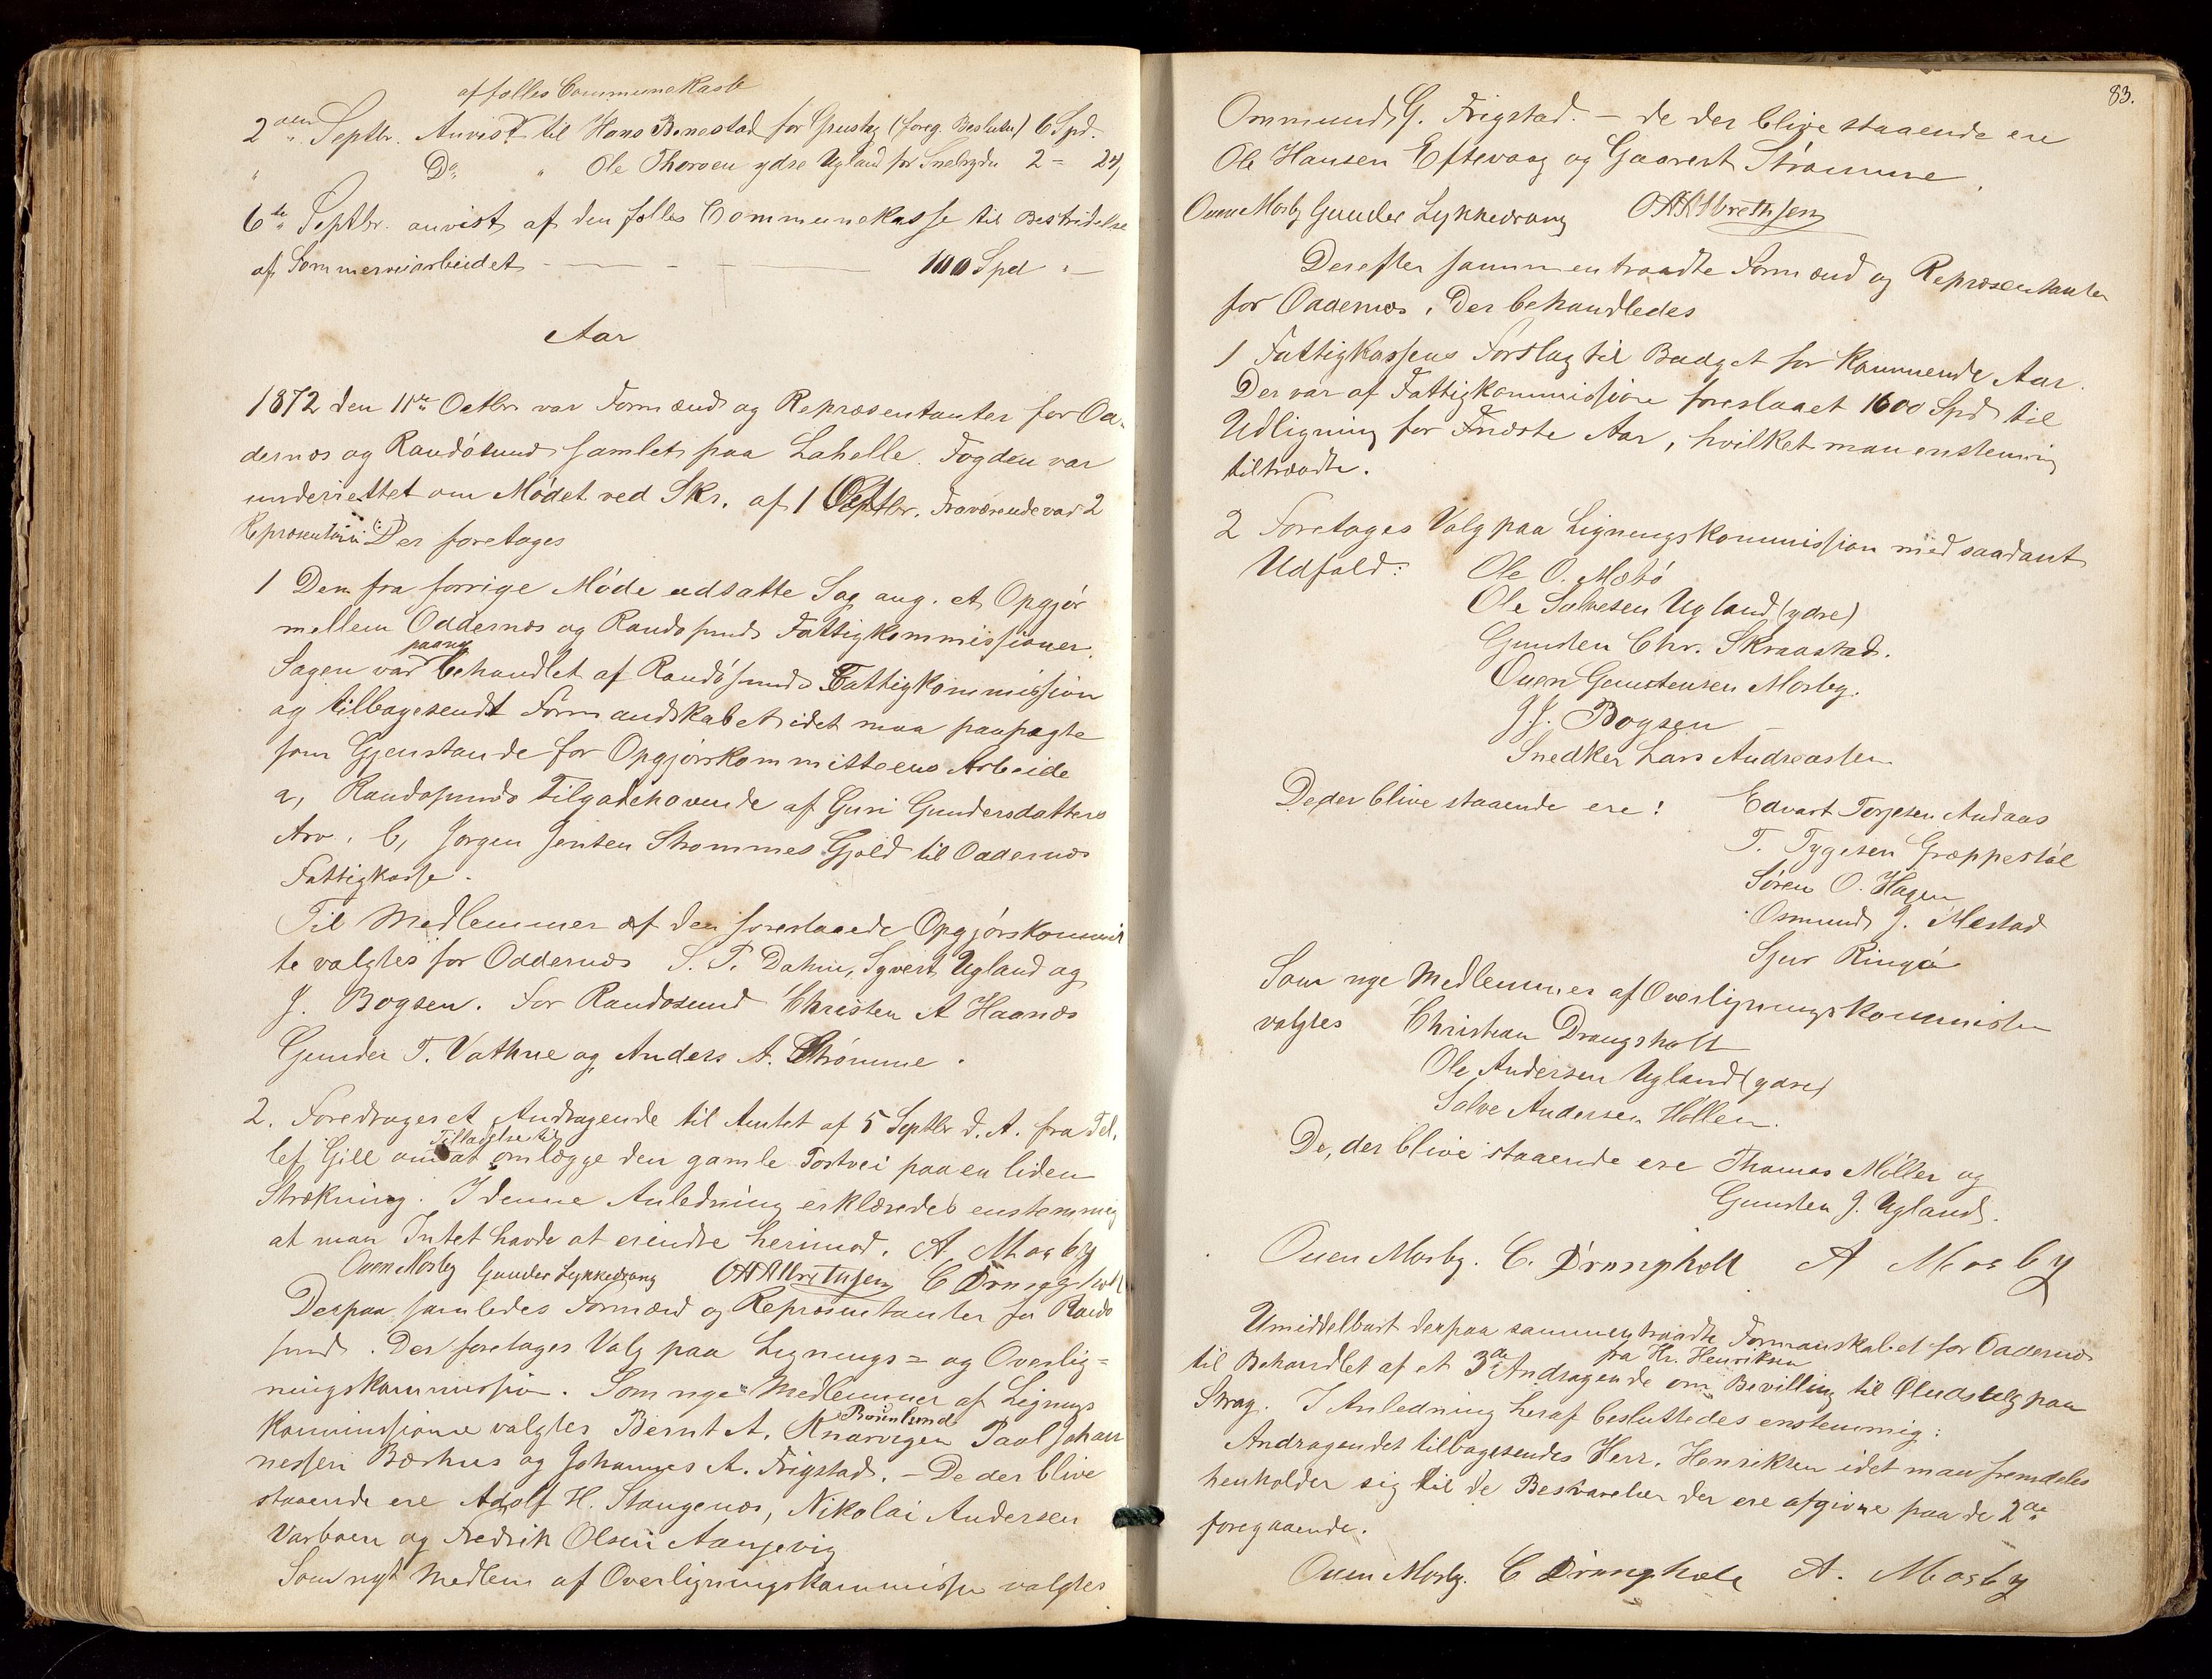 af fælles Communekasse
2den Septbr. Anvist til Hans Benestad for Grustag (foreg. Beslutn) 6 Spd.
" Do " Ole Thorsen ydre Ugland for Snebryden 2 = 24
6te Septbr. anvist af den fælles Communekasse til Bestridelse
af Sommerveiarbeidet — — — 100 Spd "—
Aar
1872 den 11te Octbr var Formænd og Repræsentanter for Od-
dernæs og Randøsund samlet paa Lahelle. Fogden var
underrettet om Mødet ved Skr. af 1 Octbr. Fraværende var 2
Repræsentanter. Der foretages
1 Den fra forrige Møde udsatte Sag ang. et Opgjør
mellem Oddernæs og Randøsunds Fattigkommissioner.
Sagen var paany behandlet af Randøsunds Fattigkommission
og tilbagesendt Formandskabet idet maa paapegte
som Gjenstande for Opgjørskommitteens Arbeide
a, Randøsunds Tilgodehavende af Guri Gundersdatters
Arv. b, Jørgen Jensen Strømmes Gjæld til Oddernæs
Fattigkasse.
Til Medlemmer af den foreslaaede Opgjørskommit
te valgtes for Oddernæs S. T. Dahm, Syvert Ugland og
J. Bogsen. For Randøsund Christen A Haanæs
Gunder T. Vathne og Anders A. Strømme.
2. Foredroges et Andragende til Amtet af 5 Septbr d. A. fra Tel.
lef Gill om Tilladelse til at omlægge den gamle Postvei paa en liden
Strækning. I denne Anledning erklæredes enstemmig
at man Intet havde at erindre herimod. A. Mosby
Ouen Mosby Gunder Lykkedrang OAAlbrethsen C Drangsholt
Derpaa samledes Formænd og Repræsentanter for Randø
sund. Der foretages Valg paa Lignings= og Overlig=
ningskommission. Som nye Medlemmer af Lignings
kommissionen valgtes Bernt A. Knarvigen Rosenlund Paal Johan
nessen Bærhus og Johannes A. Frigstad. — De der blive
staaende ere Adolf H. Stangenæs, Nikolai Andersen
Varboen og Fredrik Olsen Aangevig
Som nyt Medlem af Overligningskommissionen valgtes
83.
Ommund G. Frigstad. — de der blive staaende ere
Ole Hansen Eftevaag og Gaarest Strømme.
Ouen Mosby Gunder Lykkedrang OAAlbrethsen
Derefter sammentraadte Formænd og Repræsentanter
for Oddernæs. Der behandledes
1 Fattigkassens Forslag til Budget for kommende Aar.
Der var af Fattigkommissionen foreslaaet 1600 Spd til
Udligning for næste Aar, hvilket man enstemmig
tiltraadte.
2 Foretages Valg paa Ligningskommission med saadant
Udfald: Ole O. Mæbø
Ole Salvesen Ugland (ydre)
Gunsten Chr. Skraastad.
Ouen Gunstensen Mosby.
J. J. Bogsen
Snedker Lars Andreassen
De der blive staaende ere: Edvart Torjesen Andaas
T. Tygesen Græppestøl
Søren O. Hagen
Osmund J. Mestad
Sjur Ringø
Som nye Medlemmer af Overligningskommissionen
valgtes Christian Drangsholt
Ole Andersen Ugland (ydre)
Salve Andersen Hollen.
De, der blive staaende ere Thomas Møller og
Gunsten J. Ugland.
Ouen Mosby. C. Drangsholt A Mosby
Umiddelbart derpaa sammentraadte Formanskabet for Oddernæs
til Behandlet af et 3die Andragende fra Hr. Henriksen om Bevilling til Øludsalg paa
Stray. I Anledning heraf besluttedes enstemmig:
Andragendet tilbagesendes Herr. Henriksen idet man fremdeles
henholder sig til de Besvarelser der ere afgivne paa de 2de
foregaaende.
Ouen Mosby. C Drangsholt A. Mosby